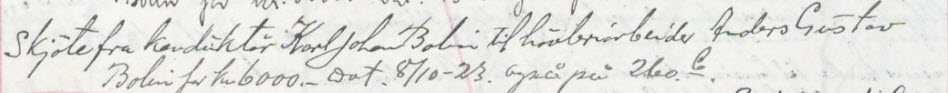 Skjöte fra konduktör Karl Johan Bolin til hövleriarbeider Anders Gustav
Bolin for kr 6000.- Dat. 8/10-23. også på 260.b.